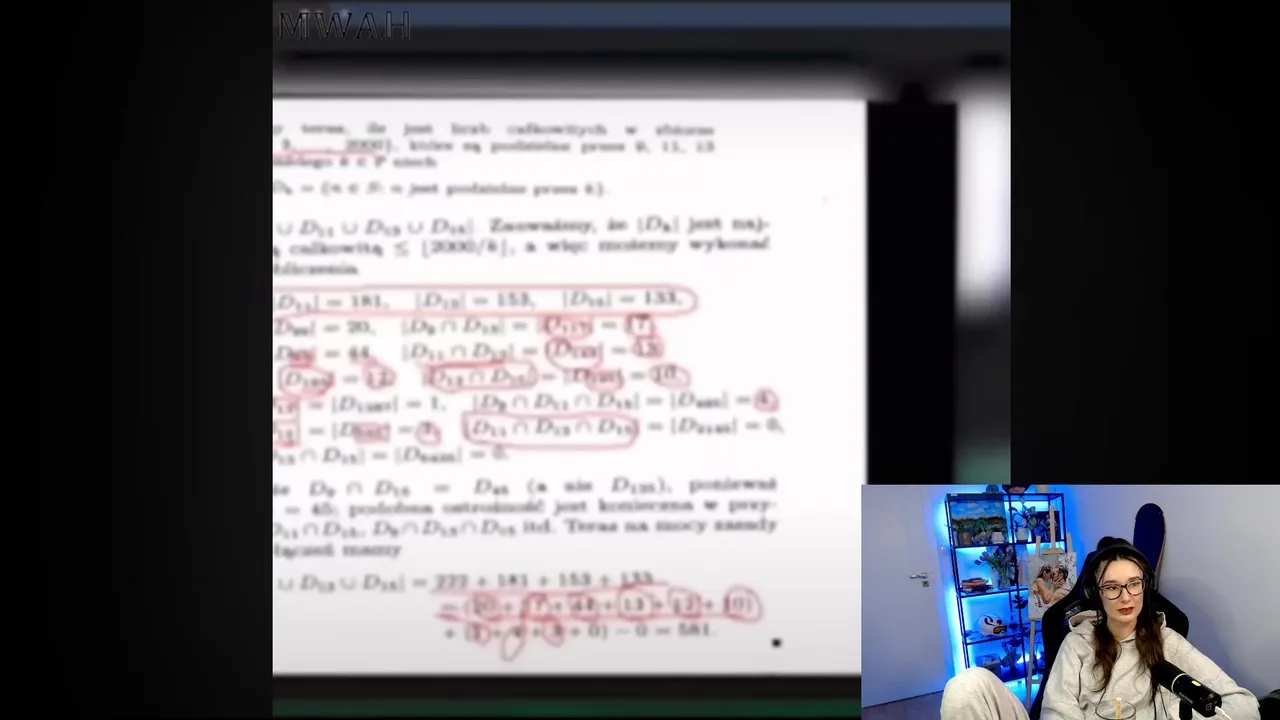 MWAH
y teraz, ile jest liczb całkowitych w zbiorze
3, ..., 2000}, które są podzielne przez 9, 11, 13
każdego k ∈ P niech
D_k = {n ∈ S: n jest podzielne przez k}.
∪ D_11 ∪ D_13 ∪ D_15|. Zauważmy, że |D_k| jest naj-
ą całkowitą ≤ ⌊2000/k⌋, a więc możemy wykonać
obliczenia
D_11| = 181, |D_13| = 153, |D_15| = 133,
D_99| = 20, |D_9 ∩ D_13| = |D_117| = 17,
D_45| = 44, |D_11 ∩ D_13| = |D_143| = 13
|D_165| = 12, |D_13 ∩ D_15| = |D_195| = 10,
= |D_1287| = 1, |D_9 ∩ D_11 ∩ D_15| = |D_495| = 4,
= |D_585| = 3, |D_11 ∩ D_13 ∩ D_15| = |D_2145| = 0,
∩ D_15| = |D_6435| = 0.
że D_9 ∩ D_15 = D_45 (a nie D_135), ponieważ
podobna ostrożność jest konieczna w przy-
D_11 ∩ D_15, D_9 ∩ D_13 ∩ D_15 itd. Teraz na mocy zasady
łączeń mamy
∪ D_13 ∪ D_15| = 222 + 181 + 153 + 133
− (20 + 17 + 44 + 13 + 12 + 10)
+ (1 + 4 + 3 + 0) − 0 = 581.